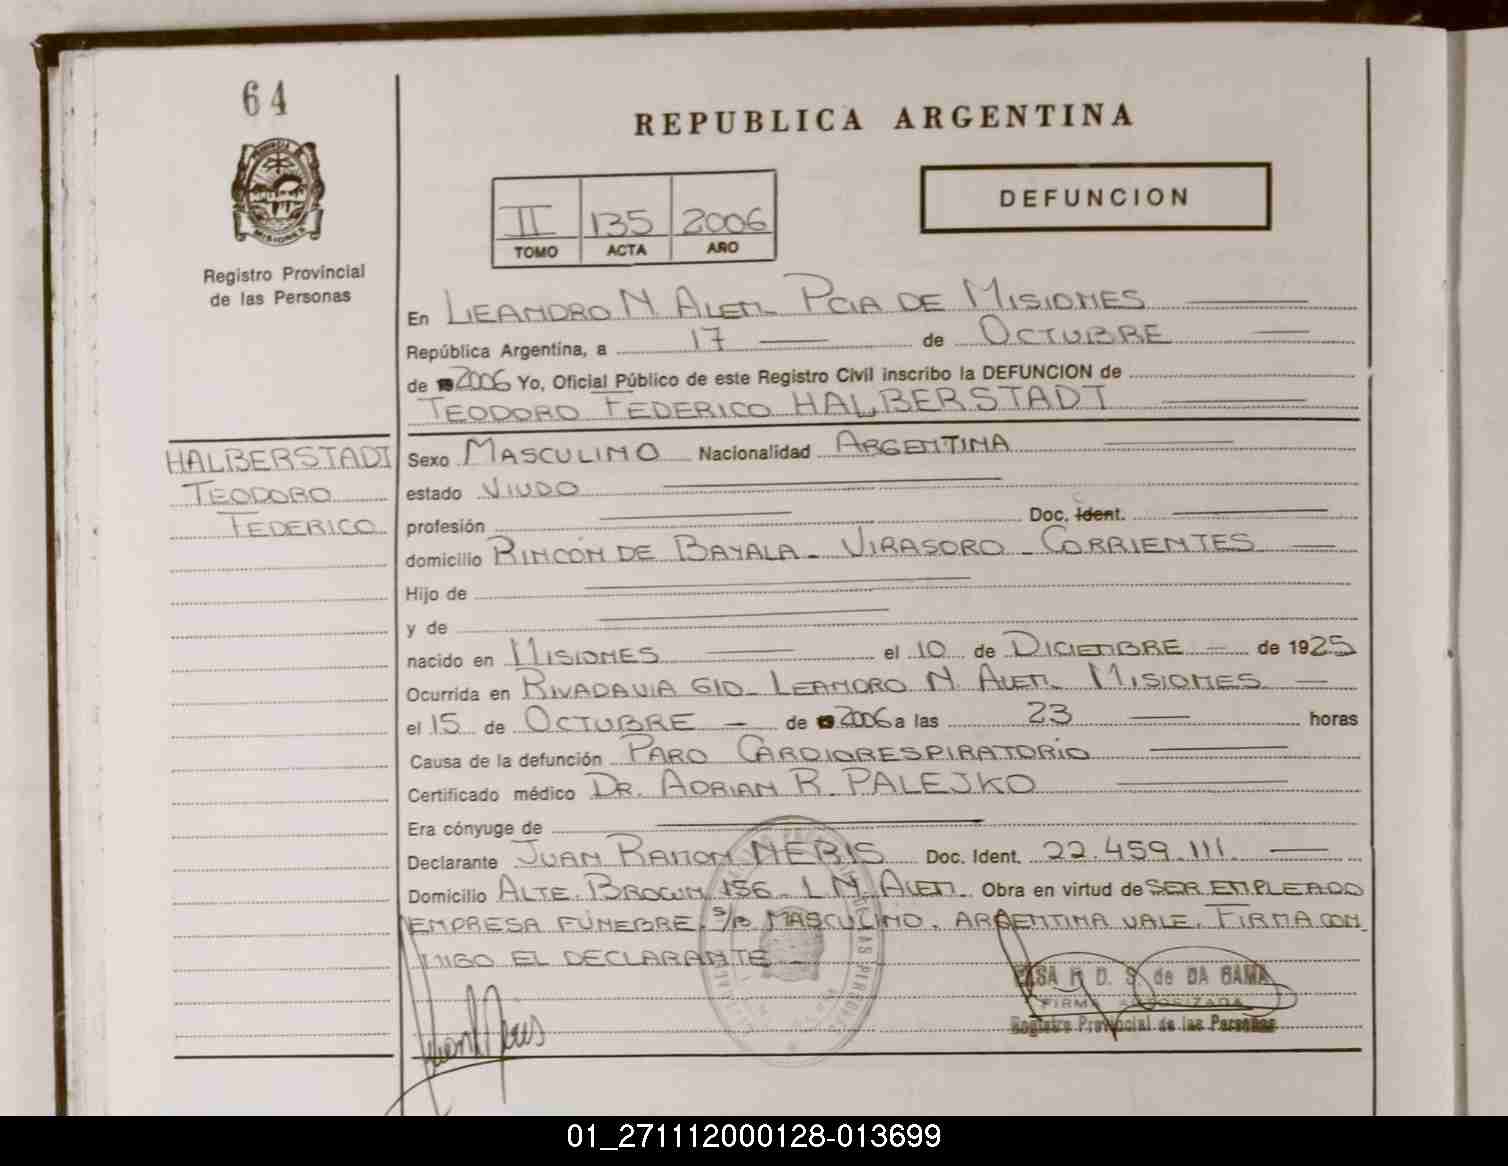 64
REPUBLICA ARGENTINA
PROVINCIA
MISIONES
Registro Provincial
de las Personas
II 135 2006
TOMO ACTA AÑO
DEFUNCION
En LEANDRO N. ALEM_ PCIA DE MISIONES
República Argentina, a 17 de OCTUBRE
de 2006 Yo, Oficial Público de este Registro Civil inscribo la DEFUNCION de
TEODORO FEDERICO HALBERSTADT
HALBERSTADT
TEODORO
FEDERICO
Sexo MASCULINO Nacionalidad ARGENTINA
estado VIUDO
profesión Doc. Ident.
domicilio RINCÓN DE BAYALA_ VIRASORO_ CORRIENTES
Hijo de
y de
nacido en MISIONES el 10 de DICIEMBRE de 1925
Ocurrida en RIVADAVIA 610_ LEANDRO N. ALEM_ MISIONES
el 15 de OCTUBRE de 2006 a las 23 horas
Causa de la defunción PARO CARDIORESPIRATORIO
Certificado médico DR. ADRIAN R. PALEJKO
Era cónyuge de
Declarante JUAN RAMON NERIS Doc. Ident. 22.459.111.
Domicilio ALTE. BROWN 156_ L.N. ALEM_ Obra en virtud de SER EMPLEADO
EMPRESA FÚNEBRE. S/B MASCULINO, ARGENTINA VALE. FIRMA CON
MIGO EL DECLARANTE
DA GAMA
FIRMA AUTORIZADA
Registro Provincial de las Personas
01_271112000128-013699